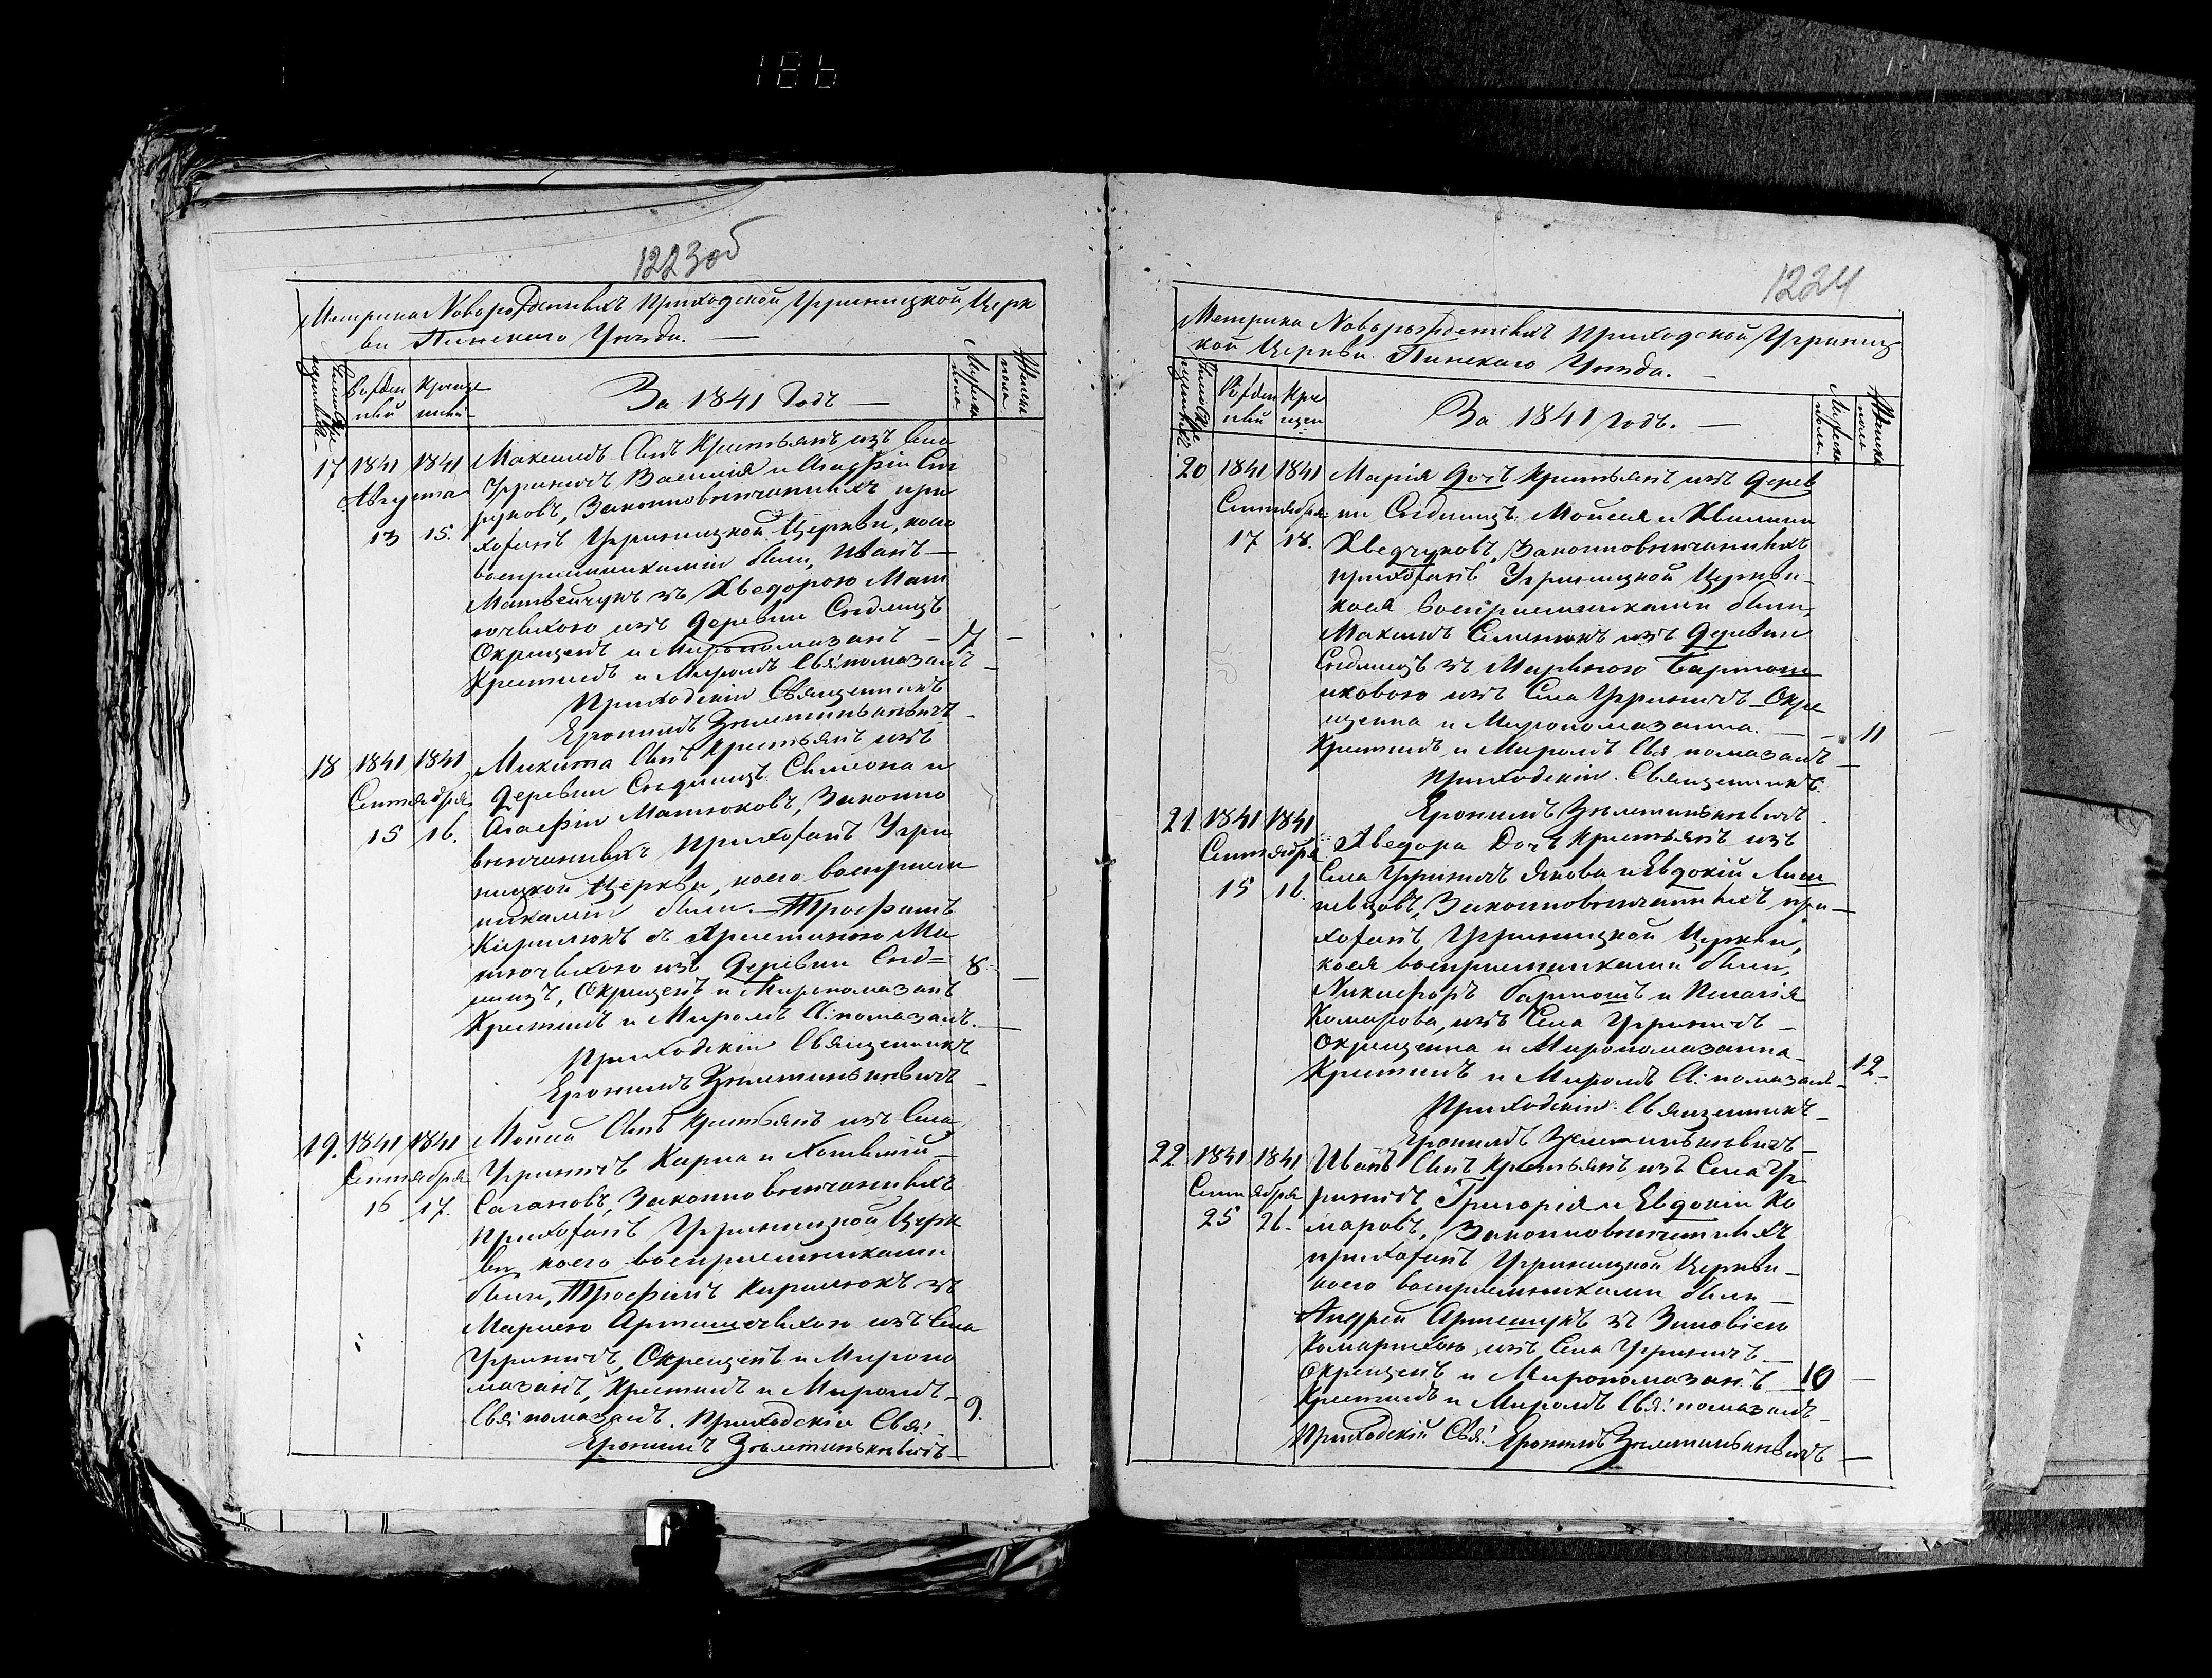 186
1223об
Метрика Новорожденныхъ Приходской Угриницкой Церк
ви Пинскаго Уѣзда. —
Рожден
ный
Креще
ный
За 1841 Годъ —
Мужеска
пола
Женска
пола
17 1841 1841 Максимъ Сынъ Крестьянъ изъ Села
Августа Угриничъ Василія и Агафіи
13 15. Законновѣнчанныхъ при
хожанъ Угриницкой Церкви, коего
воспріемниками были, Иванъ —
Матвейчукъ зъ Хведорою Мат
ючыхою изъ Деревни Сюдмицъ
Окрещенъ и Миропомазанъ — 7 —
Крестилъ и Миромъ Свя: помазалъ —
Приходскій Священникъ
Еронимъ
18 1841 1841 Микита Сынъ Крестьянъ изъ
Сентября Деревни Симеона и
15 16. Агафіи Матюковъ, Законно
вѣнчанныхъ Прихожанъ Угри
ницкой Церкви, коего воспріем
никами были. — Трофимъ
Кирилюкъ съ Христиною Ма
тючыхою изъ Деревни
Окрещенъ и Миропомазанъ 8 —
Крестилъ и Миромъ С: помазалъ. —
Приходскій Священникъ
Еронимъ
19. 1841 1841 Сынъ Крестьянъ изъ Села
Сентября Угриничъ
16 17. Сагановъ, Законновѣнчанныхъ
Прихожанъ Угриницкой Церк
ви коего воспріемниками
были, Трофимъ Кирилюкъ зъ
Мариею изъ Села
Угриничъ, Окрещенъ и Миропо
мазанъ, Крестилъ и Миромъ —
Свя: помазалъ. Приходскій Свя: 9.
Еронимъ
1224
Метрика Новорожденныхъ Приходской Угриниц
кой Церкви Пинскаго Уѣзда. —
Рожден
ный
Кре
щен
За 1841 Годъ. —
Мужеска
пола
Женска
пола
20 1841 1841 Марія Дочь Крестьянъ изъ Дерев
Сентября ни Мойсея и
17 18. Хведчуковъ, Законновѣнчанныхъ
прихожанъ Угриницкой Церкви —
коея воспріемниками были,
Максимъ Семенюкъ изъ Деревни
зъ Марьюю Бартош
иковою изъ Села Угриничъ — Окре
щенна и Миропомазанна. — 11
Крестилъ и Миромъ Свя помазалъ —
Приходскій Священникъ
Еронимъ
21. 1841 1841 Хведора Дочь Крестьянъ изъ
Сентября Села Угриничъ Якова и Евдокіи
15 16. Законновѣнчанныхъ при —
хожанъ, Угриницкой Церкви,
коея воспріемниками были,
Никифоръ Бартошъ и Пелагія
Комарова, изъ Села Угриничъ —
Окрещенна и Миропомазанна — 12.
Крестилъ и Миромъ С: помазалъ —
Приходскій Священникъ —
Еронимъ
22 1841 1841 Иванъ Сынъ Крестьянъ, изъ Села Уг
Сентября риничъ Григорія и Евдокіи Ко
25 26. маровъ, Законновѣнчанныхъ
прихожанъ Угриницкой Церкви —
коего воспріемниками были —
Андрей Артешукъ зъ Зиновіею
Комарихою изъ Села Угриничъ —
Окрещенъ и Миропомазанъ — 10 —
Крестилъ и Миромъ Свя: помазалъ —
Приходскій Свя: Еронимъ